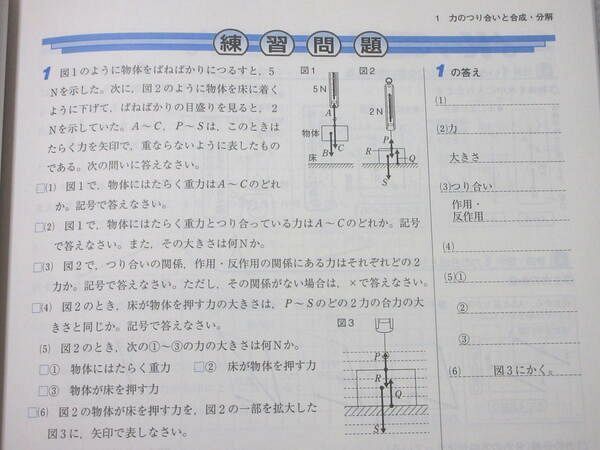 1 力のつり合いと合成・分解
練習問題
1 図1のように物体をばねばかりにつるすと，5
Nを示した。次に，図2のように物体を床に着く
ように下げて，ばねばかりの目盛りを見ると，2
Nを示していた。A〜C，P〜Sは，このときは
たらく力を矢印で，重ならないように表したもの
である。次の問いに答えなさい。
図1
5N
A
物体
B
C
床
図2
2N
P
R
Q
S
□(1) 図1で，物体にはたらく重力はA〜Cのどれ
か。記号で答えなさい。
□(2) 図1で，物体にはたらく重力とつり合っている力はA〜Cのどれか。記号
で答えなさい。また，その大きさは何Nか。
□(3) 図2で，つり合いの関係，作用・反作用の関係にある力はそれぞれどの2
力か。記号で答えなさい。ただし，その関係がない場合は，×で答えなさい。
□(4) 図2のとき，床が物体を押す力の大きさは，P〜Sのどの2力の合力の大
きさと同じか。記号で答えなさい。
(5) 図2のとき，次の①〜③の力の大きさは何Nか。
□① 物体にはたらく重力 □② 床が物体を押す力
□③ 物体が床を押す力
□(6) 図2の物体が床を押す力を，図2の一部を拡大した
図3に，矢印で表しなさい。
図3
P
R
Q
S
1の答え
(1)
(2)力
大きさ
(3)つり合い
作用・
反作用
(4)
(5)①
②
③
(6) 図3にかく。